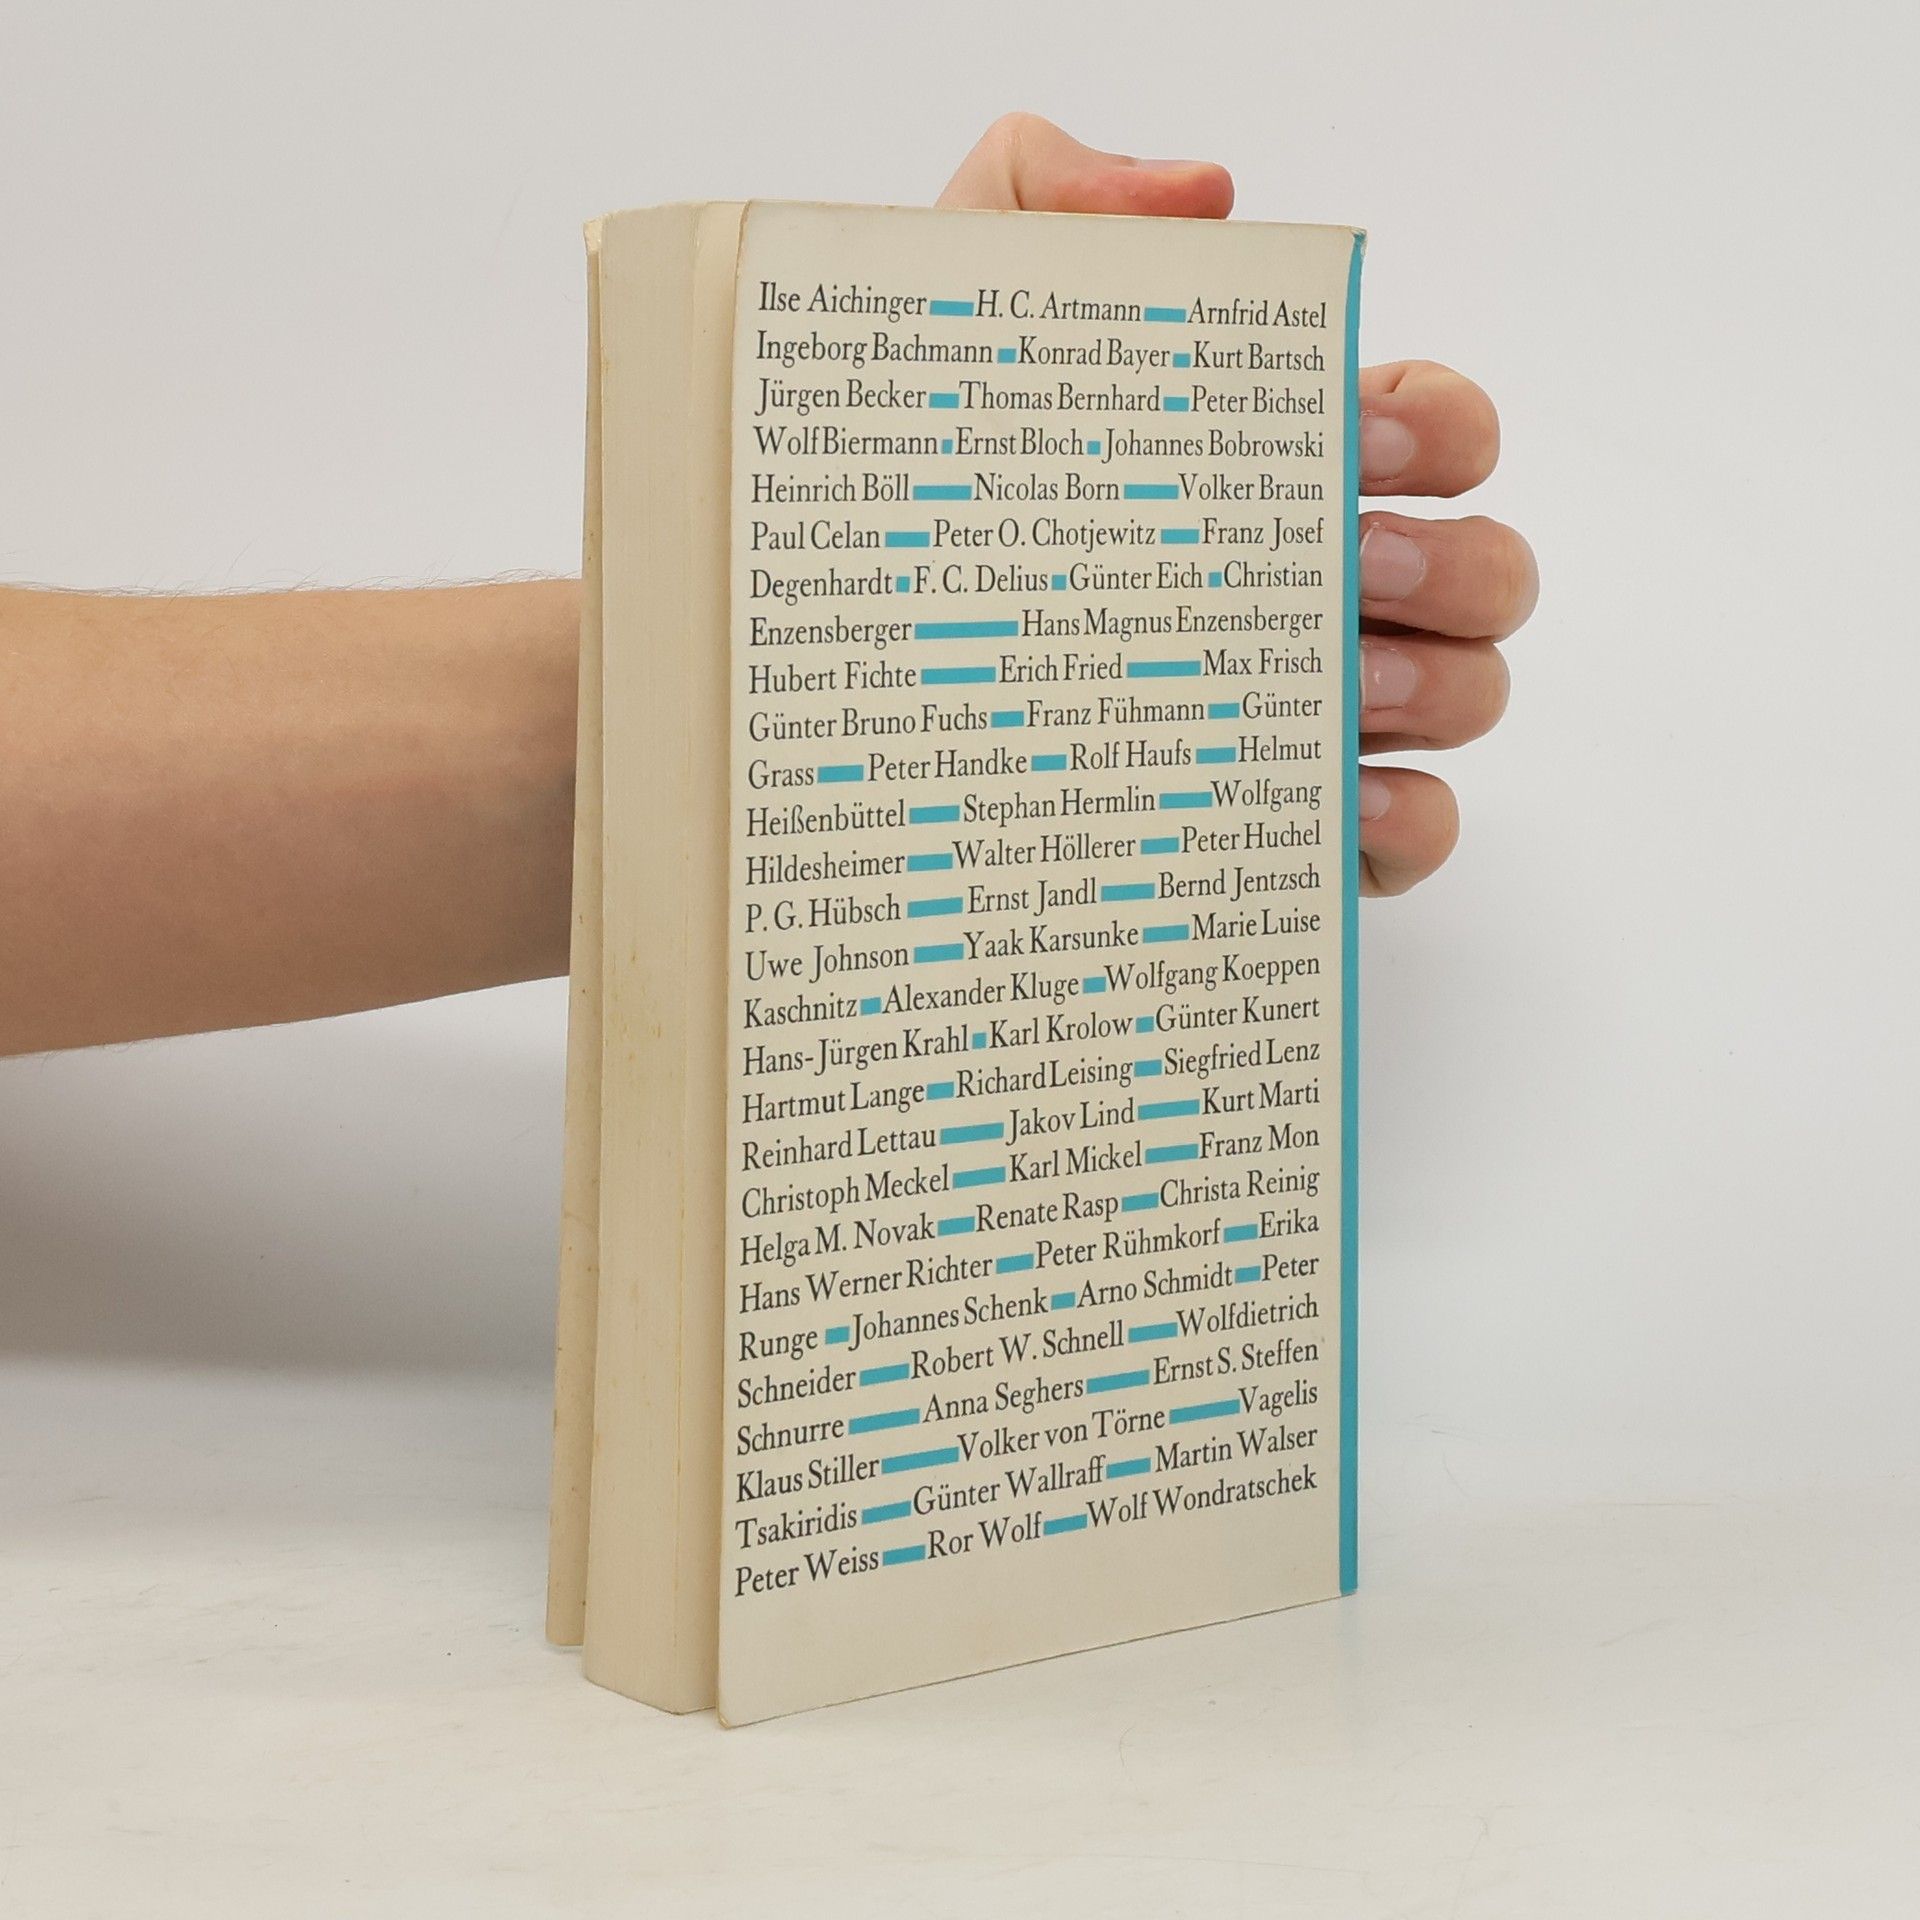 Ilse Aichinger H. C. Artmann Arnfrid Astel
Ingeborg Bachmann Konrad Bayer Kurt Bartsch
Jürgen Becker Thomas Bernhard Peter Bichsel
Wolf Biermann Ernst Bloch Johannes Bobrowski
Heinrich Böll Nicolas Born Volker Braun
Paul Celan Peter O. Chotjewitz Franz Josef
Degenhardt F. C. Delius Günter Eich Christian
Enzensberger Hans Magnus Enzensberger
Hubert Fichte Erich Fried Max Frisch
Günter Bruno Fuchs Franz Fühmann Günter
Grass Peter Handke Rolf Haufs Helmut
Heißenbüttel Stephan Hermlin Wolfgang
Hildesheimer Walter Höllerer Peter Huchel
P. G. Hübsch Ernst Jandl Bernd Jentzsch
Uwe Johnson Yaak Karsunke Marie Luise
Kaschnitz Alexander Kluge Wolfgang Koeppen
Hans-Jürgen Krahl Karl Krolow Günter Kunert
Hartmut Lange Richard Leising Siegfried Lenz
Reinhard Lettau Jakov Lind Kurt Marti
Christoph Meckel Karl Mickel Franz Mon
Helga M. Novak Renate Rasp Christa Reinig
Hans Werner Richter Peter Rühmkorf Erika
Runge Johannes Schenk Arno Schmidt Peter
Schneider Robert W. Schnell Wolfdietrich
Schnurre Anna Seghers Ernst S. Steffen
Klaus Stiller Volker von Törne Vagelis
Tsakiridis Günter Wallraff Martin Walser
Peter Weiss Ror Wolf Wolf Wondratschek